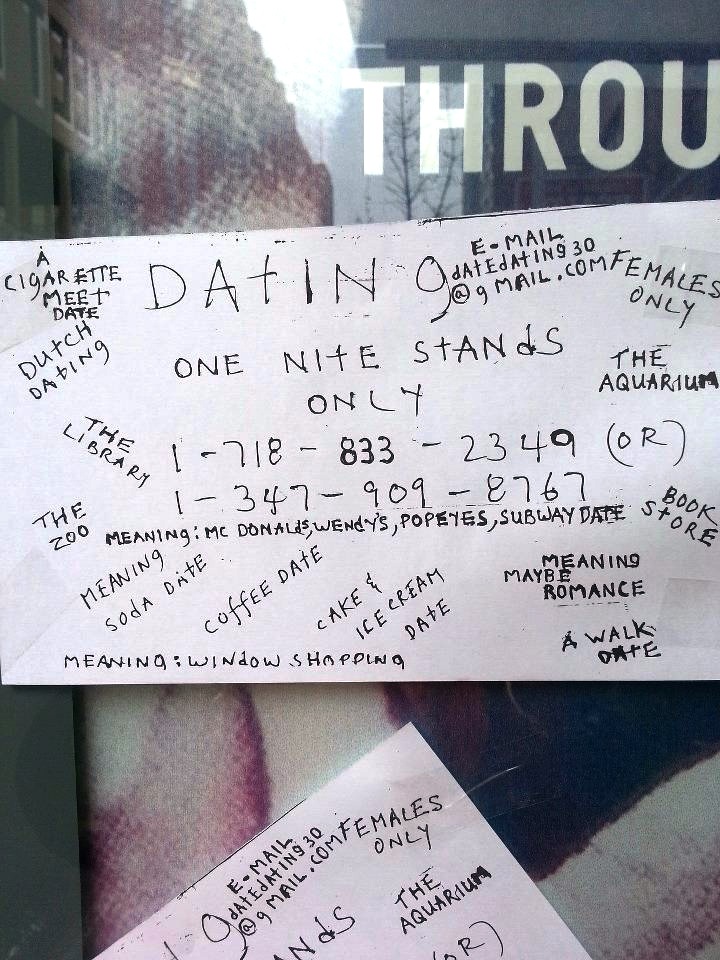 THROU
A
CIGARETTE
MEET
DATE
DATING
E-MAIL
datEdAtiNg 30
@gMAIL.COM
FEMALES
ONLY
DUtCH
DAtINg
ONE NItE StANdS
ONLY
THE
AQUARIUM
THE
LIBRARY
1-718-833-2349 (OR)
1-347-909-8767
THE
ZOO
MEANING: MC DONALdS, WENdY'S, POPEYES, SUBWAY DATE
BOOK
StORE
MEANING
SODA DAtE
COffEE DAtE
CAKE &
ICE CREAM
DAtE
MEANING
MAYBE
ROMANCE
A WALK
DAtE
MEANING: WINdOW SHOPPING
E-MAIL
dAtEdAtINg 30
@gMAIL.COM
FEMALES
ONLY
g
ANdS
THE
AQUARIUM
OR)